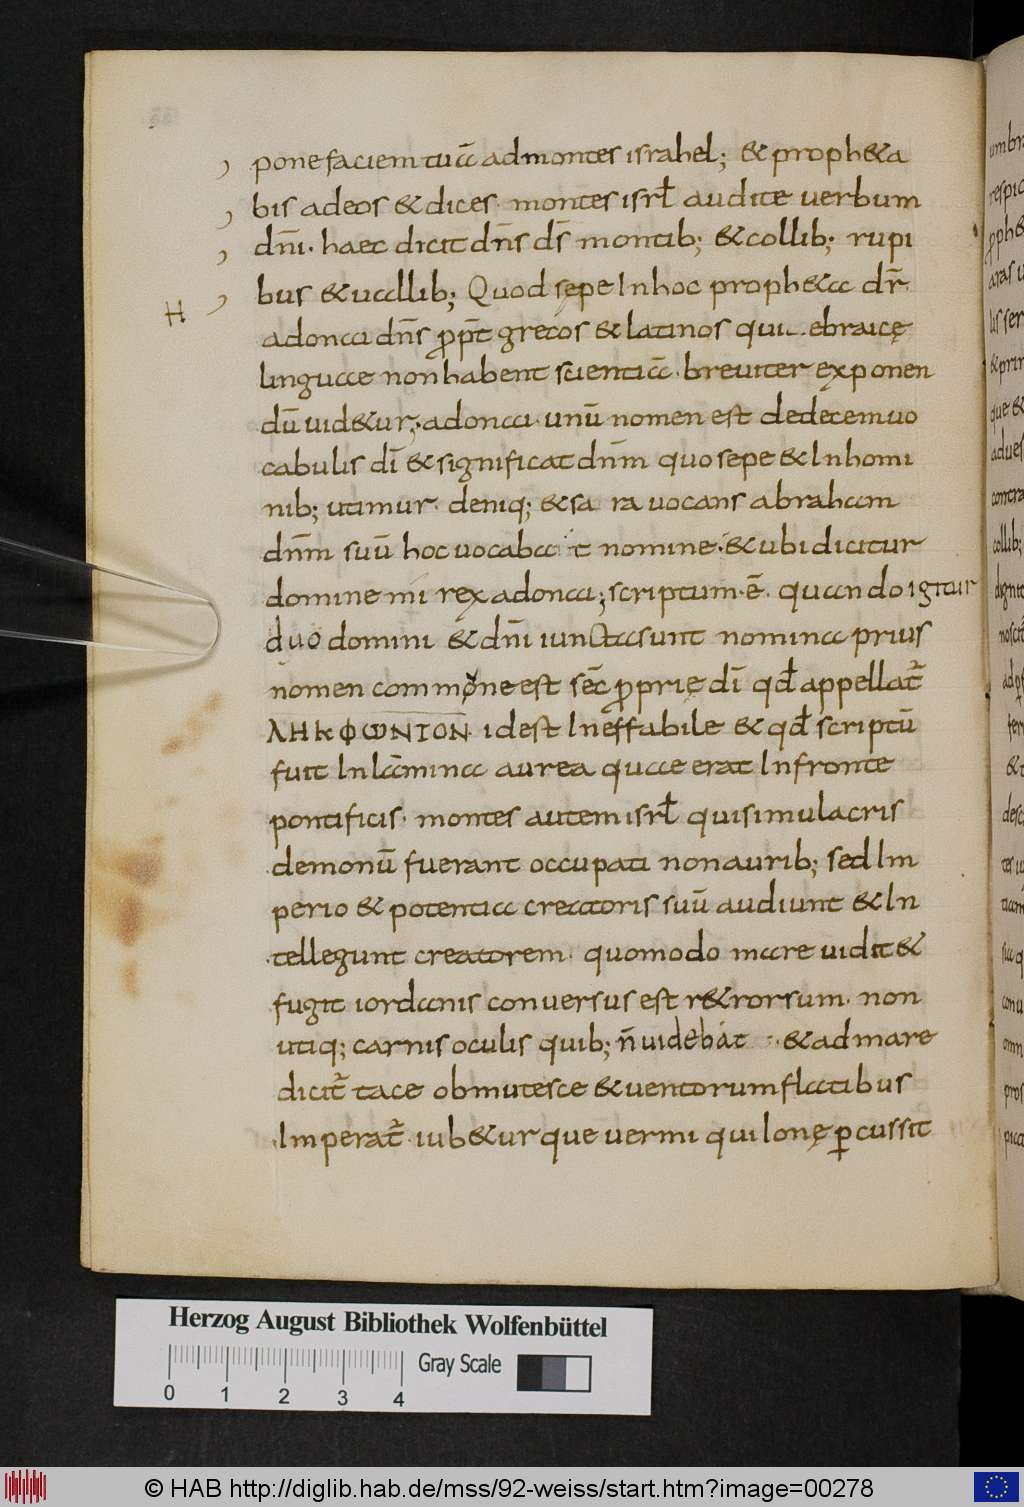 pone faciem tuā ad montes israhel; & proph&a
bis ad eos & dices · montes isrł audite uerbum
dn̄i · haec dicit dn̄s d̄s montib; & collib; rupi
bus & uallib; Quod sępe In hoc proph&a dr̄
H
adonai dn̄s ꝓp̄t grecos & latinos qui ebraicę
linguae non habent scientiā · breuiter exponen
dū uid&ur; · adonai · unū nomen est de decem uo
cabulis dī & significat dn̄m quo sepe & In homi
nib; utimur · deniq; & sa ra uocans abraham
dn̄m suū hoc uocaba t nomine · & ubi dicitur
domine mi rex adonai; scriptum · ē · quando igitur
duo domini & dn̄i iuncta sunt nomina prius
nomen commone est sēc ꝓprię dī qđ appellat̄
ΛΗΚΦΩΝΙΟΝ · id est Ineffabile & qđ scriptū
fuit In lāmina aurea quae erat In fronte
pontificis · montes autem isrł qui simulacris
demonū fuerant occupati non aurib; sed Im
perio & potentia creatoris suū audiunt & In
tellegunt creatorem · quomodo mare uidit &
fugit iordanis conuersus est r&rorsum · non
utiq; carnis oculis quib; n̄ uidebat · & ad mare
dicit̄ tace obmutesce & uentorum flatibus
Imperat̄ · iub&urque uermi qui ionę ꝑcussit
Herzog August Bibliothek Wolfenbüttel
Gray Scale
0 1 2 3 4
© HAB http://diglib.hab.de/mss/92-weiss/start.htm?image=00278